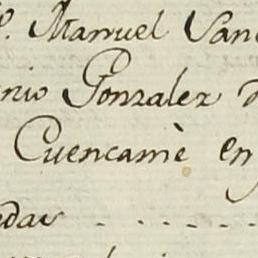 Manuel San
nio Gonzalez d
Cuencamè en
edav